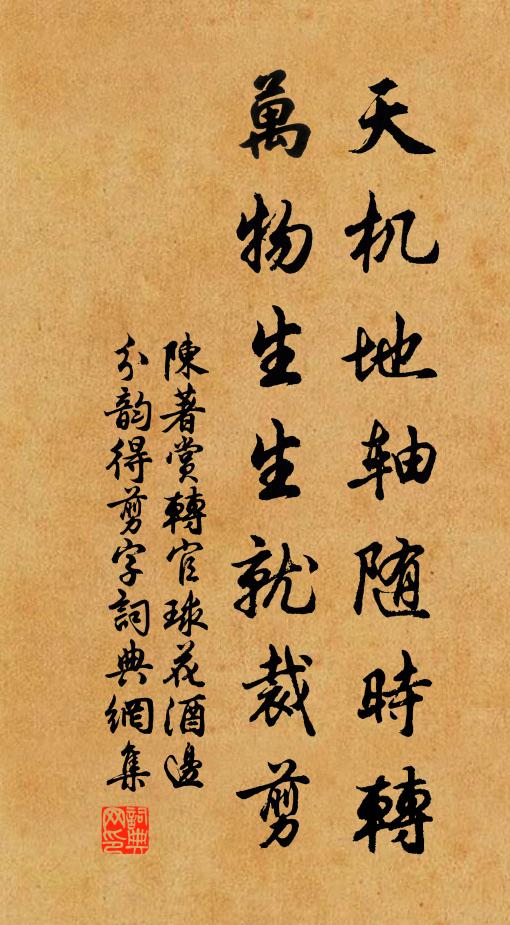 天机地轴随時轉
萬物生生就裁剪
陳著賞轉官球花酒邊
分韵得剪字詞典網集
詞典网印